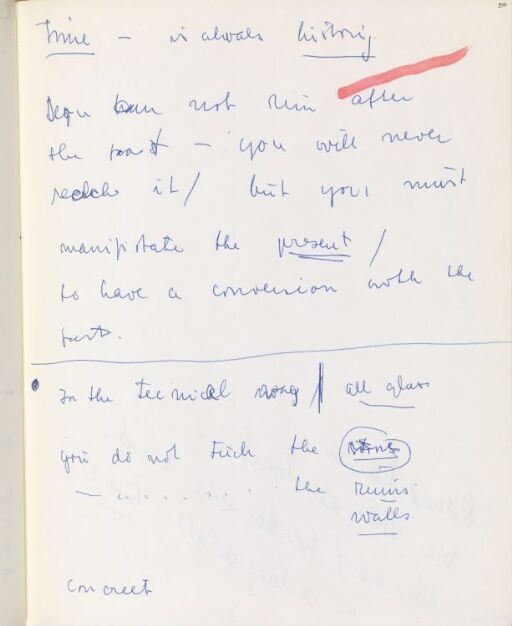 20
Time – is always history.
You can not run after
the past – you will never
reach it / but you must
manifistate the present /
to have a conversion with the
past.
In the tecnical way / all glass
you do not tuch the
– " . . . . . . . the ruins
walls
Concreet